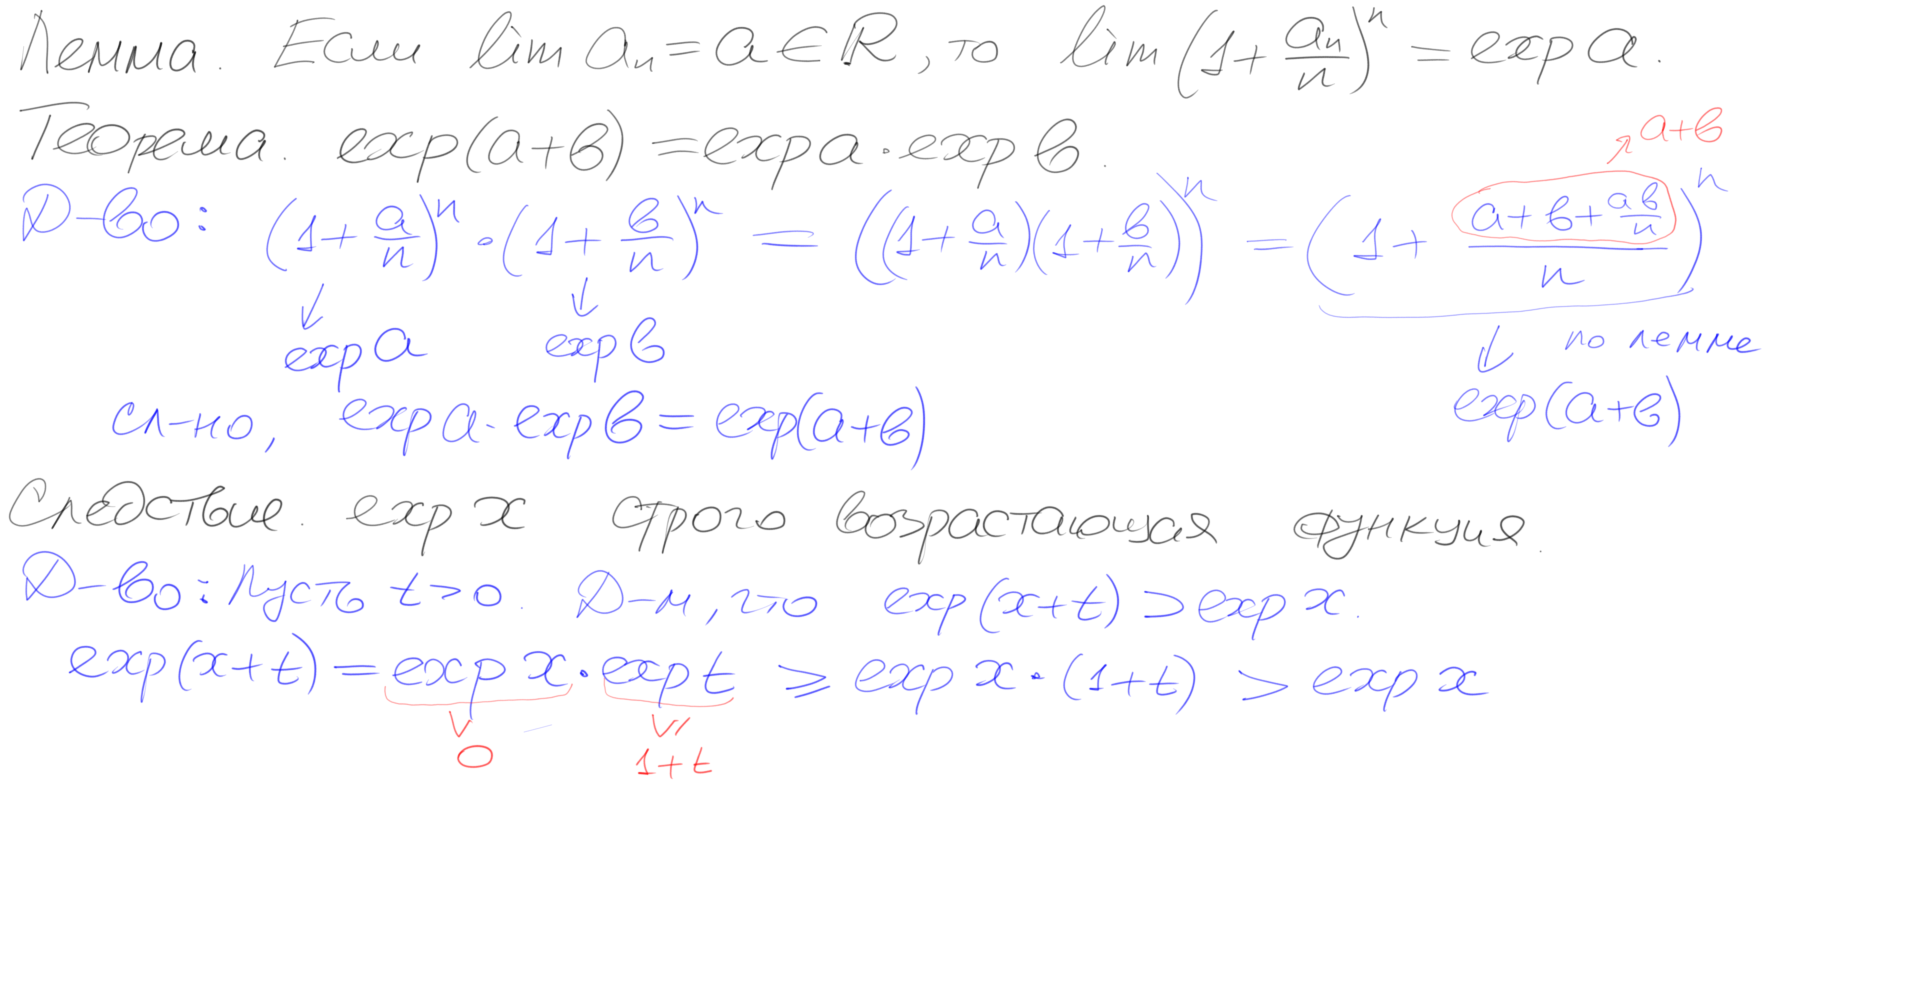 Лемма. Если lim aₙ = a ∈ ℝ, то lim (1 + aₙ/n)ⁿ = exp a.
Теорема. exp(a+b) = exp a · exp b.
↗ a+b
Д-во: (1 + a/n)ⁿ · (1 + b/n)ⁿ = ((1 + a/n)(1 + b/n))ⁿ = (1 + (a + b + ab/n)/n)ⁿ
↓ ↓ ↓ по лемме
exp a exp b exp(a+b)
сл-но, exp a · exp b = exp(a+b)
Следствие. exp x строго возрастающая функция.
Д-во: Пусть t > 0. Д-м, что exp(x+t) > exp x.
exp(x+t) = exp x · exp t ⩾ exp x · (1+t) > exp x
∨ ∨/
0 1+t